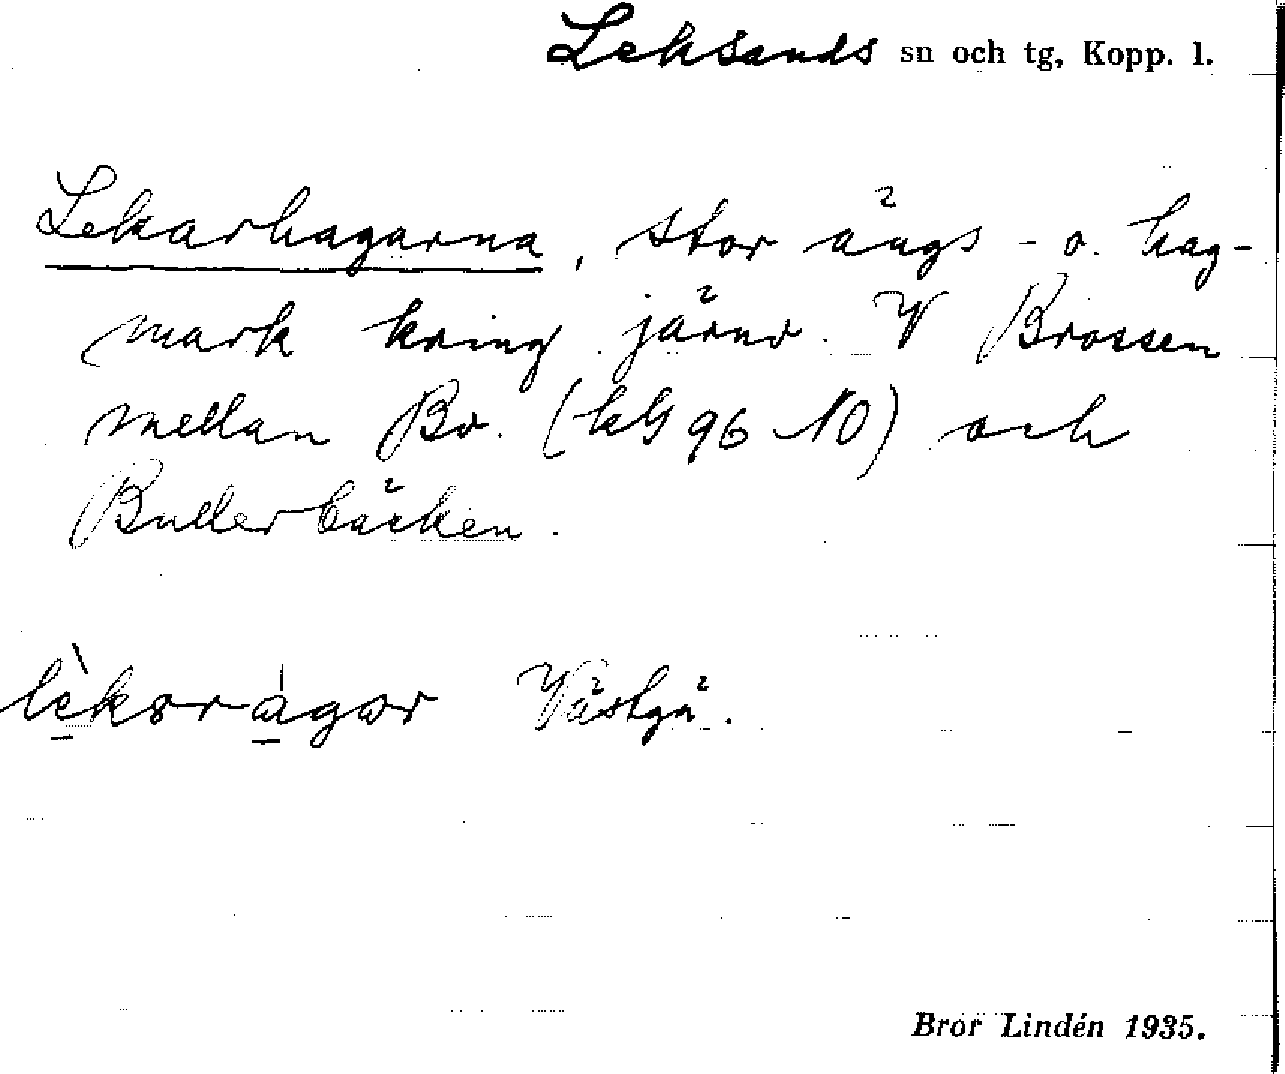 Leksands sn och tg, Kopp. l.
Lekarhagarna, stor ängs- o. hag-
mark kring järnv. V Brossen
mellan Br. (kbl 96 NO) och
Bullerbäcken.
lèkərágar Västgä.
Bror Lindén 1935.